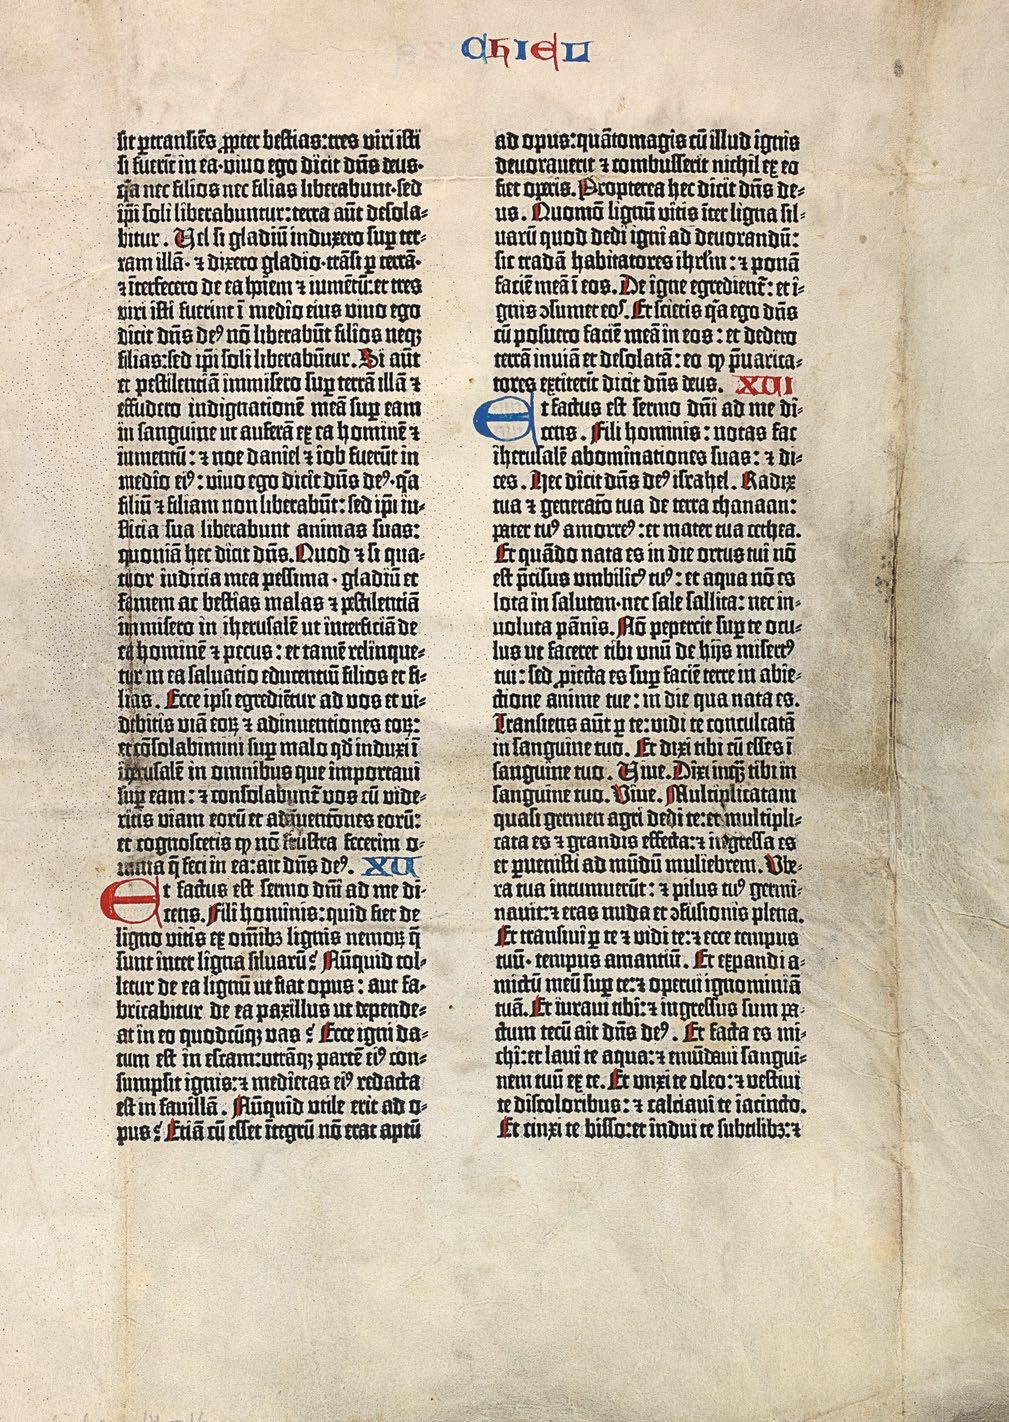 CHIEL
sit ꝑtransiēs ꝓpter bestias: tres viri isti
si fuerīt in ea · vivo ego dicit dn̄s deus ·
q̄a nec filios nec filias liberabunt · sed
ip̄i soli liberabuntur: terra aūt desola-
bitur . Vel si gladiū induxero suꝑ ter-
ram illā · ⁊ dixero gladio · trāsi ꝑ terrā ·
⁊ īterfecero de ea ho͞iem ⁊ iumētū: et tres
viri isti fuerint ī medio eius vivo ego
dicit dn̄s deꝰ nō liberabūt filios neqꝫ
filias: sed ip̄i soli liberabūtur . Si aūt
et pestilentiā immisero suꝑ terrā illā ⁊
effudero indignationē meā suꝑ eam
in sanguine ut auferā ex ea hominē ⁊
iumentū: ⁊ noe daniel ⁊ iob fuerūt in
medio eiꝰ: vivo ego dicit dn̄s deꝰ · q̄a
filiū ⁊ filiam non liberabūt: sed ip̄i iu-
sticia sua liberabunt animas suas:
quoniā hec dicit dn̄s. Quod ⁊ si qua-
tuor iudicia mea pessima · gladiū et
famem ac bestias malas ⁊ pestilentiā
immisero in iherusalē ut interficiā de
ea hominē ⁊ pecus: et tamē relinque-
tur in ea salvatio educentiū filios et fi-
lias . Ecce ipsi egrediētur ad vos et vi-
debitis viā eoꝝ ⁊ adinventiones eoꝝ:
et cōsolabimini suꝑ malo qd̄ induxi ī
iherusalē in omnibus que importavi
suꝑ eam: ⁊ consolabunt̄ vos cū vide-
ritis viam eorū et adinventōnes eorū:
et cognoscetis ꝙ nō frustra fecerim o-
mnia q̄ feci in ea: ait dn̄s deꝰ. XV
Et factus est sermo dn̄i ad me di-
cens. Fili hominis: quid fiet de
ligno vitis ex om̄ibꝫ lignis nemoꝝ q̄
sunt inter ligna silvarū? Nūquid tol-
letur de ea lignū ut fiat opus: aut fa-
bricabitur de ea paxillus ut depende-
at in eo quodcūqꝫ vas? Ecce igni da-
tum est in escam: utrāqꝫ partē eiꝰ con-
sumpsit ignis: ⁊ medietas eiꝰ redacta
est in favillā . Nūquid utile erit ad o-
pus? Etiā cū esset ītegrū nō erat aptū
ad opus: quātomagis cū illud ignis
devoraverit ⁊ combusserit nichil ex eo
fiet oꝑis. Propterea hec dicit dn̄s de-
us. Quomō lignū vitis īter ligna sil-
varū quod dedi igni ad devorandū:
sic tradā habitatores ihrl̄m: ⁊ ponā
faciē meā ī eos. De igne egredient̄: et i-
gnis ↄsumet eoſ. Et scietis q̄a ego dn̄s
cū posuero faciē meā in eos: et dedero
terrā inviā et desolatā: eo ꝙ p̄varica-
tores extiterīt dicit dn̄s deus. XVI
Et factus est sermo dn̄i ad me di-
cens . Fili hominis: notas fac
iherusalē abominationes suas: ⁊ di-
ces. Hec dicit dn̄s deꝰ israhel. Radix
tua ⁊ generatō tua de terra chanaan:
pater tuꝰ amorreꝰ: et mater tua cethea.
Et quādo nata es in die ortus tui nō
est p̄cisus umbilicꝰ tuꝰ: et aqua nō es
lota in salutem · nec sale sallita: nec in-
voluta pānis. Nō pepercit suꝑ te ocu-
lus ut faceret tibi unū de hijs misertꝰ
tui: sed ꝓiecta es suꝑ faciē terre in abie-
ctione anime tue: in die qua nata es.
Transiens aūt ꝑ te: vidi te conculcatā
in sanguine tuo. Et dixi tibi cū esses ī
sanguine tuo. Vive. Dixi inqꝫ tibi in
sanguine tuo. Vive. Multiplicatam
quasi germen agri dedi te: et multipli-
cata es ⁊ grandis effecta: ⁊ ingressa es
et ꝑvenisti ad mūdū muliebrem. Ube-
ra tua intumuerūt: ⁊ pilus tuꝰ germi-
navit: ⁊ eras nuda et ↄfusionis plena.
Et transivi ꝑ te ⁊ vidi te: ⁊ ecce tempus
tuū · tempus amantiū . Et expandi a-
mictū meū suꝑ te: ⁊ operui ignominiā
tuā. Et iuravi tibi: ⁊ ingressus sum pa-
ctum tecū ait dn̄s deꝰ. Et facta es mi-
chi: et lavi te aqua: ⁊ emūdavi sangui-
nem tuū ex te. Et unxi te oleo: ⁊ vestivi
te discoloribus: ⁊ calciavi te iacincto.
Et cinxi te bisso: et indui te subtilibꝫ: ⁊